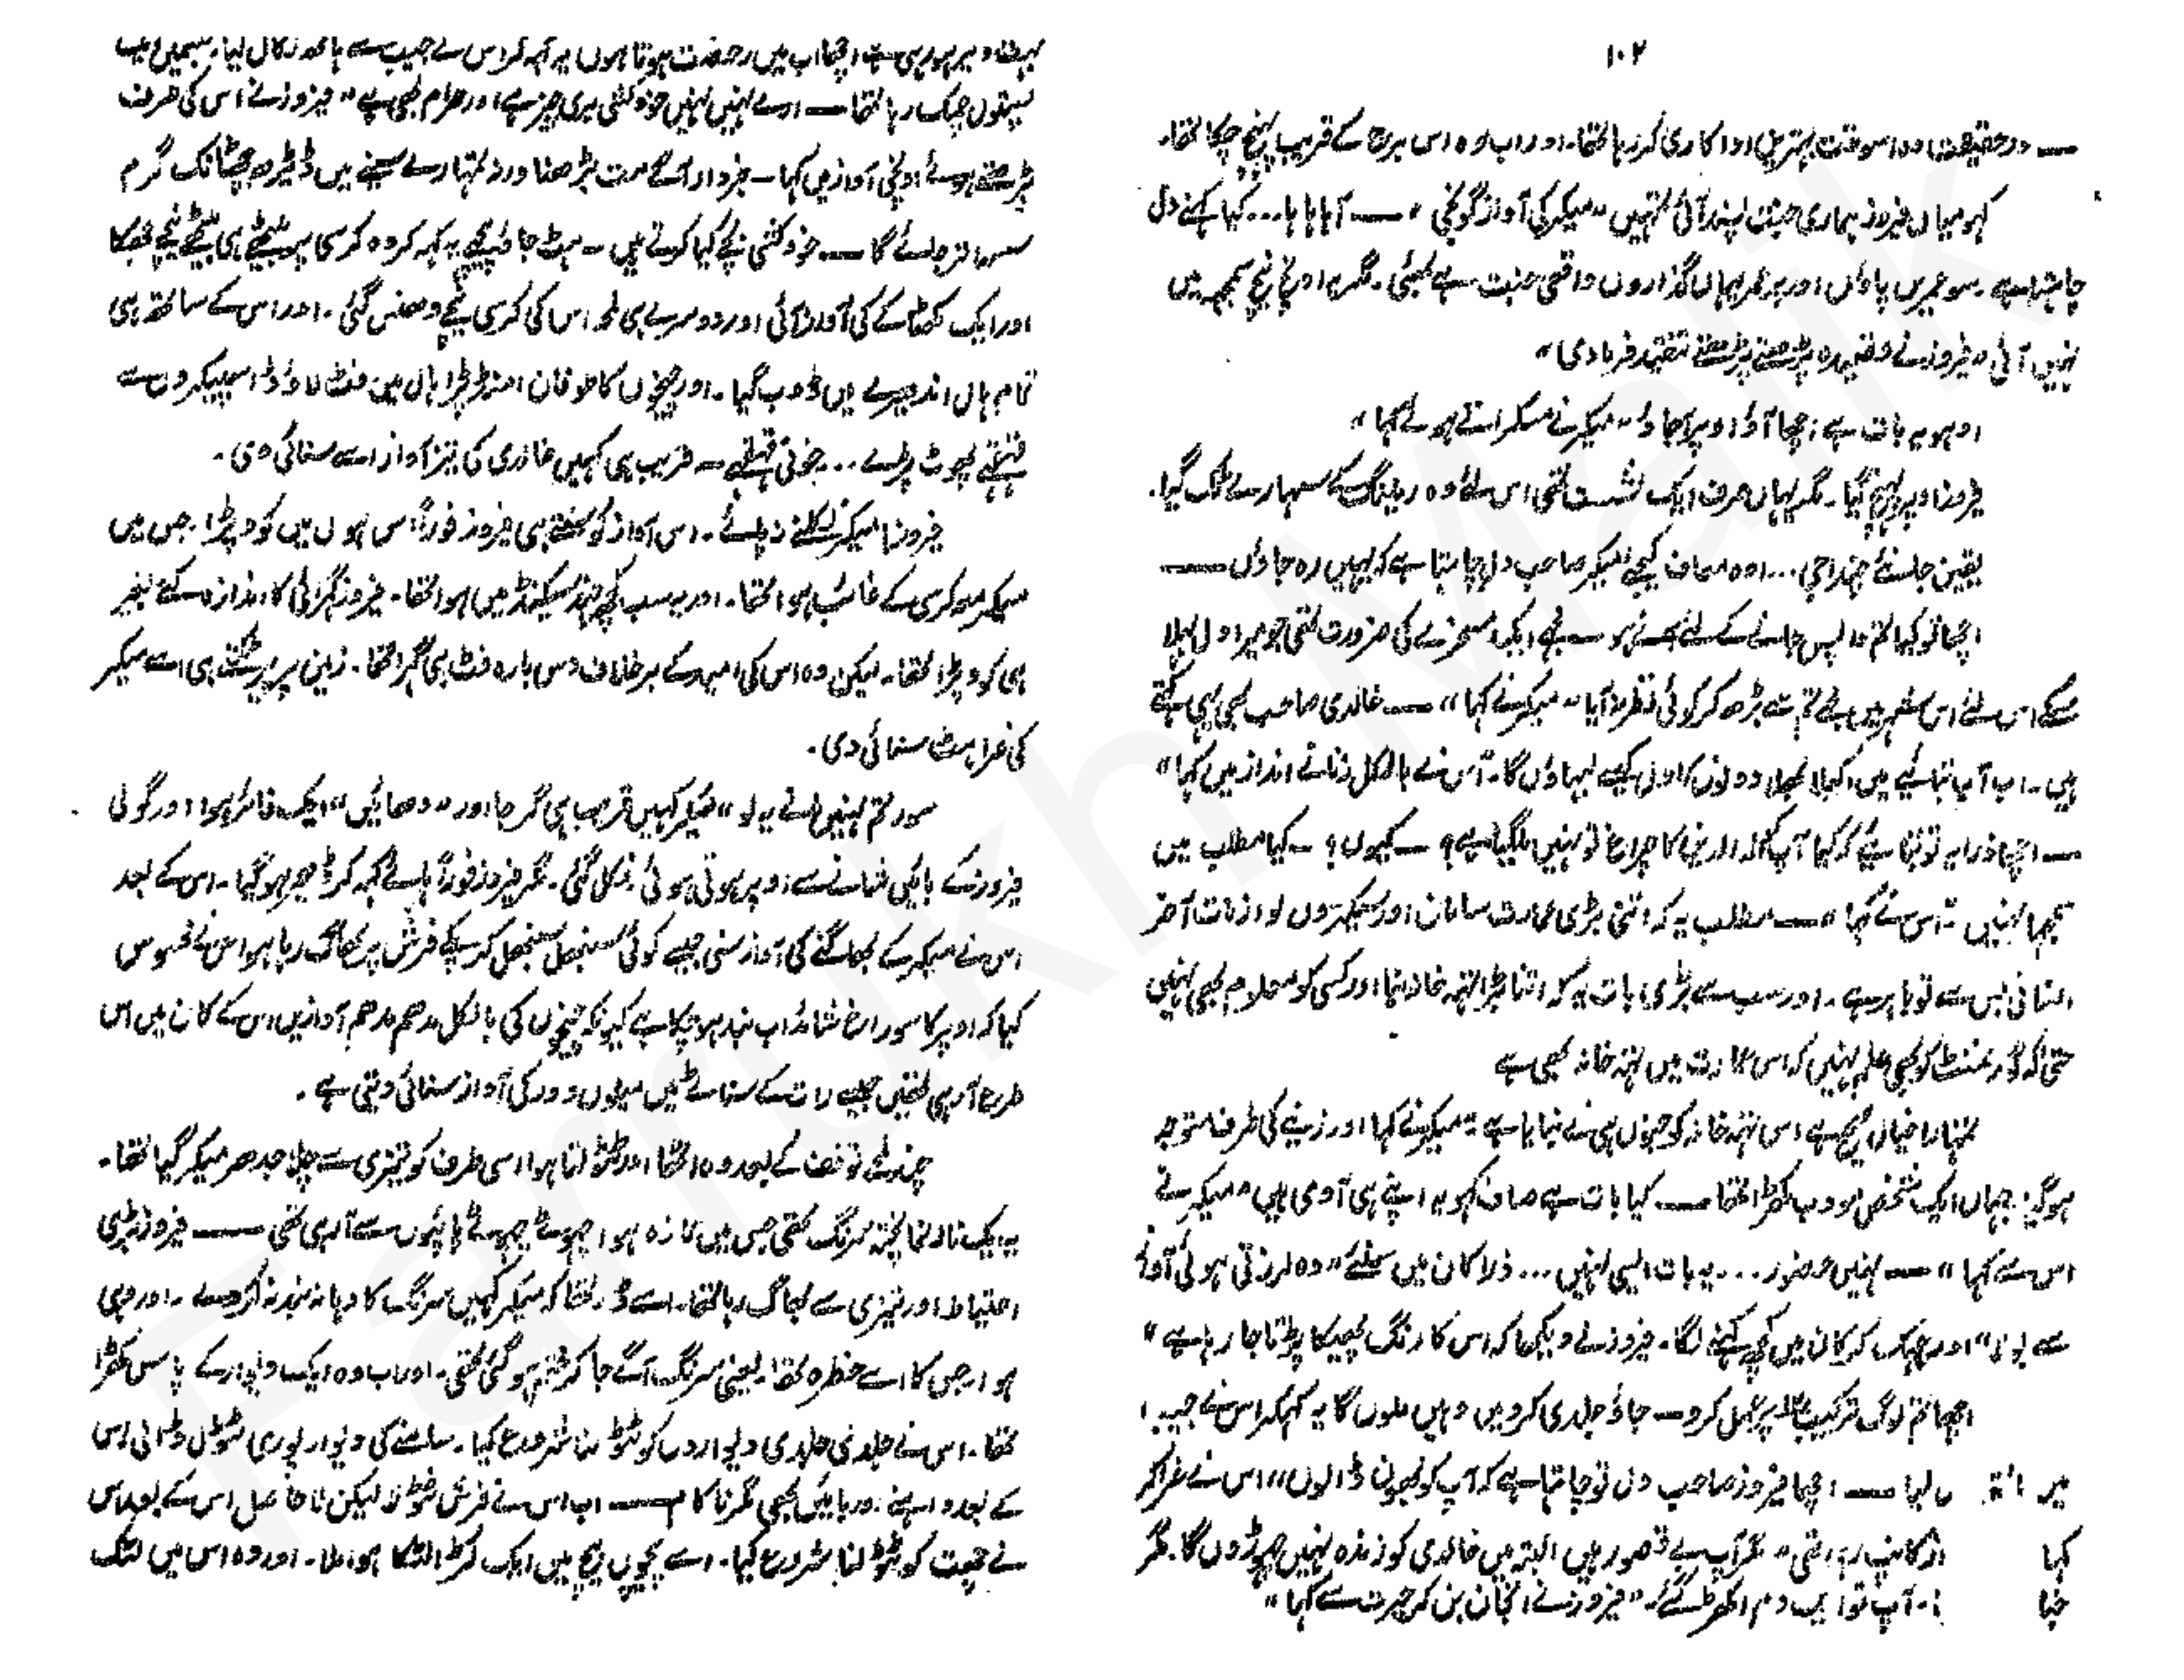 ۱۰۲
— درحقیقت وہ اسوقت بہترین اداکاری کر رہا تھا۔ اور اب وہ اس برج کے قریب پہنچ چکا تھا۔
کہو میاں فیروز ہماری جنت پسند آئی تمہیں ”میکر کی آواز گونجی“ — آہاہاہا... کیا کہنے دل
چاہتا ہے۔ سو عمریں پاؤں اور ہر عمر یہاں گذاروں واقعی جنت ہے بھئی۔ مگر یہ اونچ نیچ سمجھ میں
نہیں آئی ”فیروز نے قصیدہ پڑھتے پڑھتے تنقید فرما دی“
اوہو یہ بات ہے اچھا آؤ اوپر آجاؤ ”میکر نے مسکراتے ہوئے کہا“
فیروز اوپر پہنچ گیا۔ مگر یہاں صرف ایک نشست تھی اس لئے وہ ریلنگ کے سہارے ٹک گیا۔
یقین جانئے چندا جی... اوہ معاف کیجئے میکر صاحب دل چاہتا ہے کہ یہیں رہ جاؤں —
اچھا تو کیا تم واپس جانے کے لئے آئے ہو — مجھے ایک مسخرے کی ضرورت تھی جو میرا دل بہلا
سکے اس لئے اس شہر میں مجھے تم سے بڑھ کر کوئی نظر نہ آیا ”میکر نے کہا“ — خالدی صاحب بھی یہی کہتے
ہیں۔ اب آپ بتائیے میں اکیلا بھلا دونوں کا دل کیسے لبھاؤں گا۔ ”اس نے بالکل زنانے انداز میں کہا“
— اچھا ذرا یہ تو بتائیے کہ کیا آپ کو الہ دین کا چراغ تو نہیں مل گیا ہے؟ — کیوں؟ — کیا مطلب میں
سمجھا نہیں ”اس نے کہا“ — مطلب یہ کہ اتنی بڑی عمارت سامان اور سیکڑوں لوازمات آخر
انسانی بس سے تو باہر ہے۔ اور سب سے بڑی بات یہ کہ اتنا بڑا تہہ خانہ بنا اور کسی کو معلوم بھی نہیں
حتیٰ کہ گورنمنٹ کو بھی علم نہیں کہ اس عمارت میں تہہ خانہ بھی ہے
تمہارا خیال صحیح ہے اس تہہ خانہ کو جنوں ہی نے بنایا ہے ”میکر نے کہا اور زینے کی طرف متوجہ
ہو گیا؛ جہاں ایک شخص مودب کھڑا تھا — کیا بات ہے صاف کہو یہ اپنے ہی آدمی ہیں ”میکر نے
اس سے کہا“ — نہیں حضور... یہ بات ایسی نہیں... ذرا کان میں سنئے ”وہ لرزتی ہوئی آواز
سے بولا“ اور جھک کر کان میں کچھ کہنے لگا۔ فیروز نے دیکھا کہ اس کا رنگ پھیکا پڑتا جا رہا ہے“
اچھا تم لوگ ترکیب پر عمل کرو — جاؤ جلدی کرو میں وہیں ملوں گا یہ کہہ کر اس نے جیب
میں لیا — اچھا فیروز صاحب دل تو چاہتا ہے کہ آپ کو بھون ڈالوں“ اس نے غرا کر
کہا کانپ رہی تھی ”مگر آپ بے قصور ہیں البتہ میں خالدی کو زندہ نہیں چھوڑوں گا۔ مگر
آپ تو ایک دم اکھڑ گئے۔ ”فیروز نے انجان بن کر حیرت سے کہا“
بہت دیر ہو رہی ہے اچھا اب میں رخصت ہوتا ہوں یہ کہہ کر اس نے جیب سے ہاتھ نکال لیا۔ جسمیں ایک
پستول چمک رہا تھا — ارے نہیں نہیں خودکشی بری چیز ہے اور حرام بھی ہے ”فیروز نے اس کی طرف
بڑھتے ہوئے اونچی آواز میں کہا — خبردار آگے مت بڑھنا ورنہ تمہارے سینے میں ڈیڑھ چھٹانک گرم
سیسہ اتر جائے گا — خودکشی بچے کیا کرتے ہیں — ہٹ جاؤ پیچھے یہ کہہ کر وہ کرسی پر بیٹھے ہی بیٹھے نیچے جھکا
اور ایک کھٹاکے کی آواز آئی اور دوسرے ہی لمحہ اس کی کرسی نیچے دھنس گئی۔ اور اس کے ساتھ ہی
تمام ہال اندھیرے میں ڈوب گیا۔ اور چیخوں کا طوفان امنڈ پڑا ہال میں فٹ لاؤڈ اسپیکروں سے
قہقہے پھوٹ پڑے... خونی قہقہے — قریب ہی کہیں خالدی کی تیز آواز اسے سنائی دی۔
فیروز! میکر نکلنے نہ پائے۔ اس آواز کو سنتے ہی فیروز فوراً اس ہول میں کود پڑا۔ جس میں
میکر مع کرسی کے غائب ہوا تھا۔ اور یہ سب کچھ چند سیکنڈ میں ہوا تھا۔ فیروز گہرائی کا اندازہ کئے بغیر
ہی کود پڑا تھا۔ لیکن وہ اس کی امید کے برخلاف دس بارہ فٹ ہی گہرا تھا۔ زمین پر پیر ٹکتے ہی اسے میکر
کی غراہٹ سنائی دی۔
سور تم نہیں مانے یہ لو ”میکر کہیں قریب ہی گرجا اور ”دھائیں“ ایک فائر ہوا اور گولی
فیروز کے بائیں شانے سے اوپر ہوتی ہوئی نکل گئی۔ مگر فیروز فوراً ہائے کہہ کر ڈھیر ہو گیا۔ اس کے بعد
اس نے میکر کے بھاگنے کی آواز سنی جیسے کوئی سنبھل سنبھل کر پکے فرش پر بھاگ رہا ہو اس نے محسوس
کیا کہ اوپر کا سوراخ شائد اب بند ہو چکا ہے کیونکہ چیخوں کی بالکل مدھم مدھم آوازیں اس کے کان میں اس
طرح آ رہی تھیں جیسے رات کے سناٹے میں میلوں دور کی آواز سنائی دیتی ہے۔
چند لمحے توقف کے بعد وہ اٹھا اور ٹٹولتا ہوا اسی طرف کو تیزی سے چلا جدھر میکر گیا تھا۔
یہ ایک نالہ نما پختہ سرنگ تھی جس میں تازہ ہوا چھوٹے چھوٹے پائپوں سے آ رہی تھی — فیروز بڑی
احتیاط اور تیزی سے بھاگ رہا تھا۔ اسے ڈر تھا کہ میکر کہیں سرنگ کا دہانہ بند نہ کر دے۔ اور وہی
ہوا جس کا اسے خطرہ تھا۔ یعنی سرنگ آگے جا کر ختم ہو گئی تھی۔ اور اب وہ ایک دیوار کے پاس کھڑا
تھا۔ اس نے جلدی جلدی دیواروں کو ٹٹولنا شروع کیا۔ سامنے کی دیوار پوری ٹٹول ڈالی اس
کے بعد داہنے اور بائیں بھی مگر ناکام — اب اس نے فرش ٹٹولا لیکن لا حاصل اس کے بعد اس
نے چھت کو ٹٹولنا شروع کیا۔ اسے بیچوں بیچ میں ایک کڑا لٹکا ہوا ملا۔ اور وہ اس میں لٹک